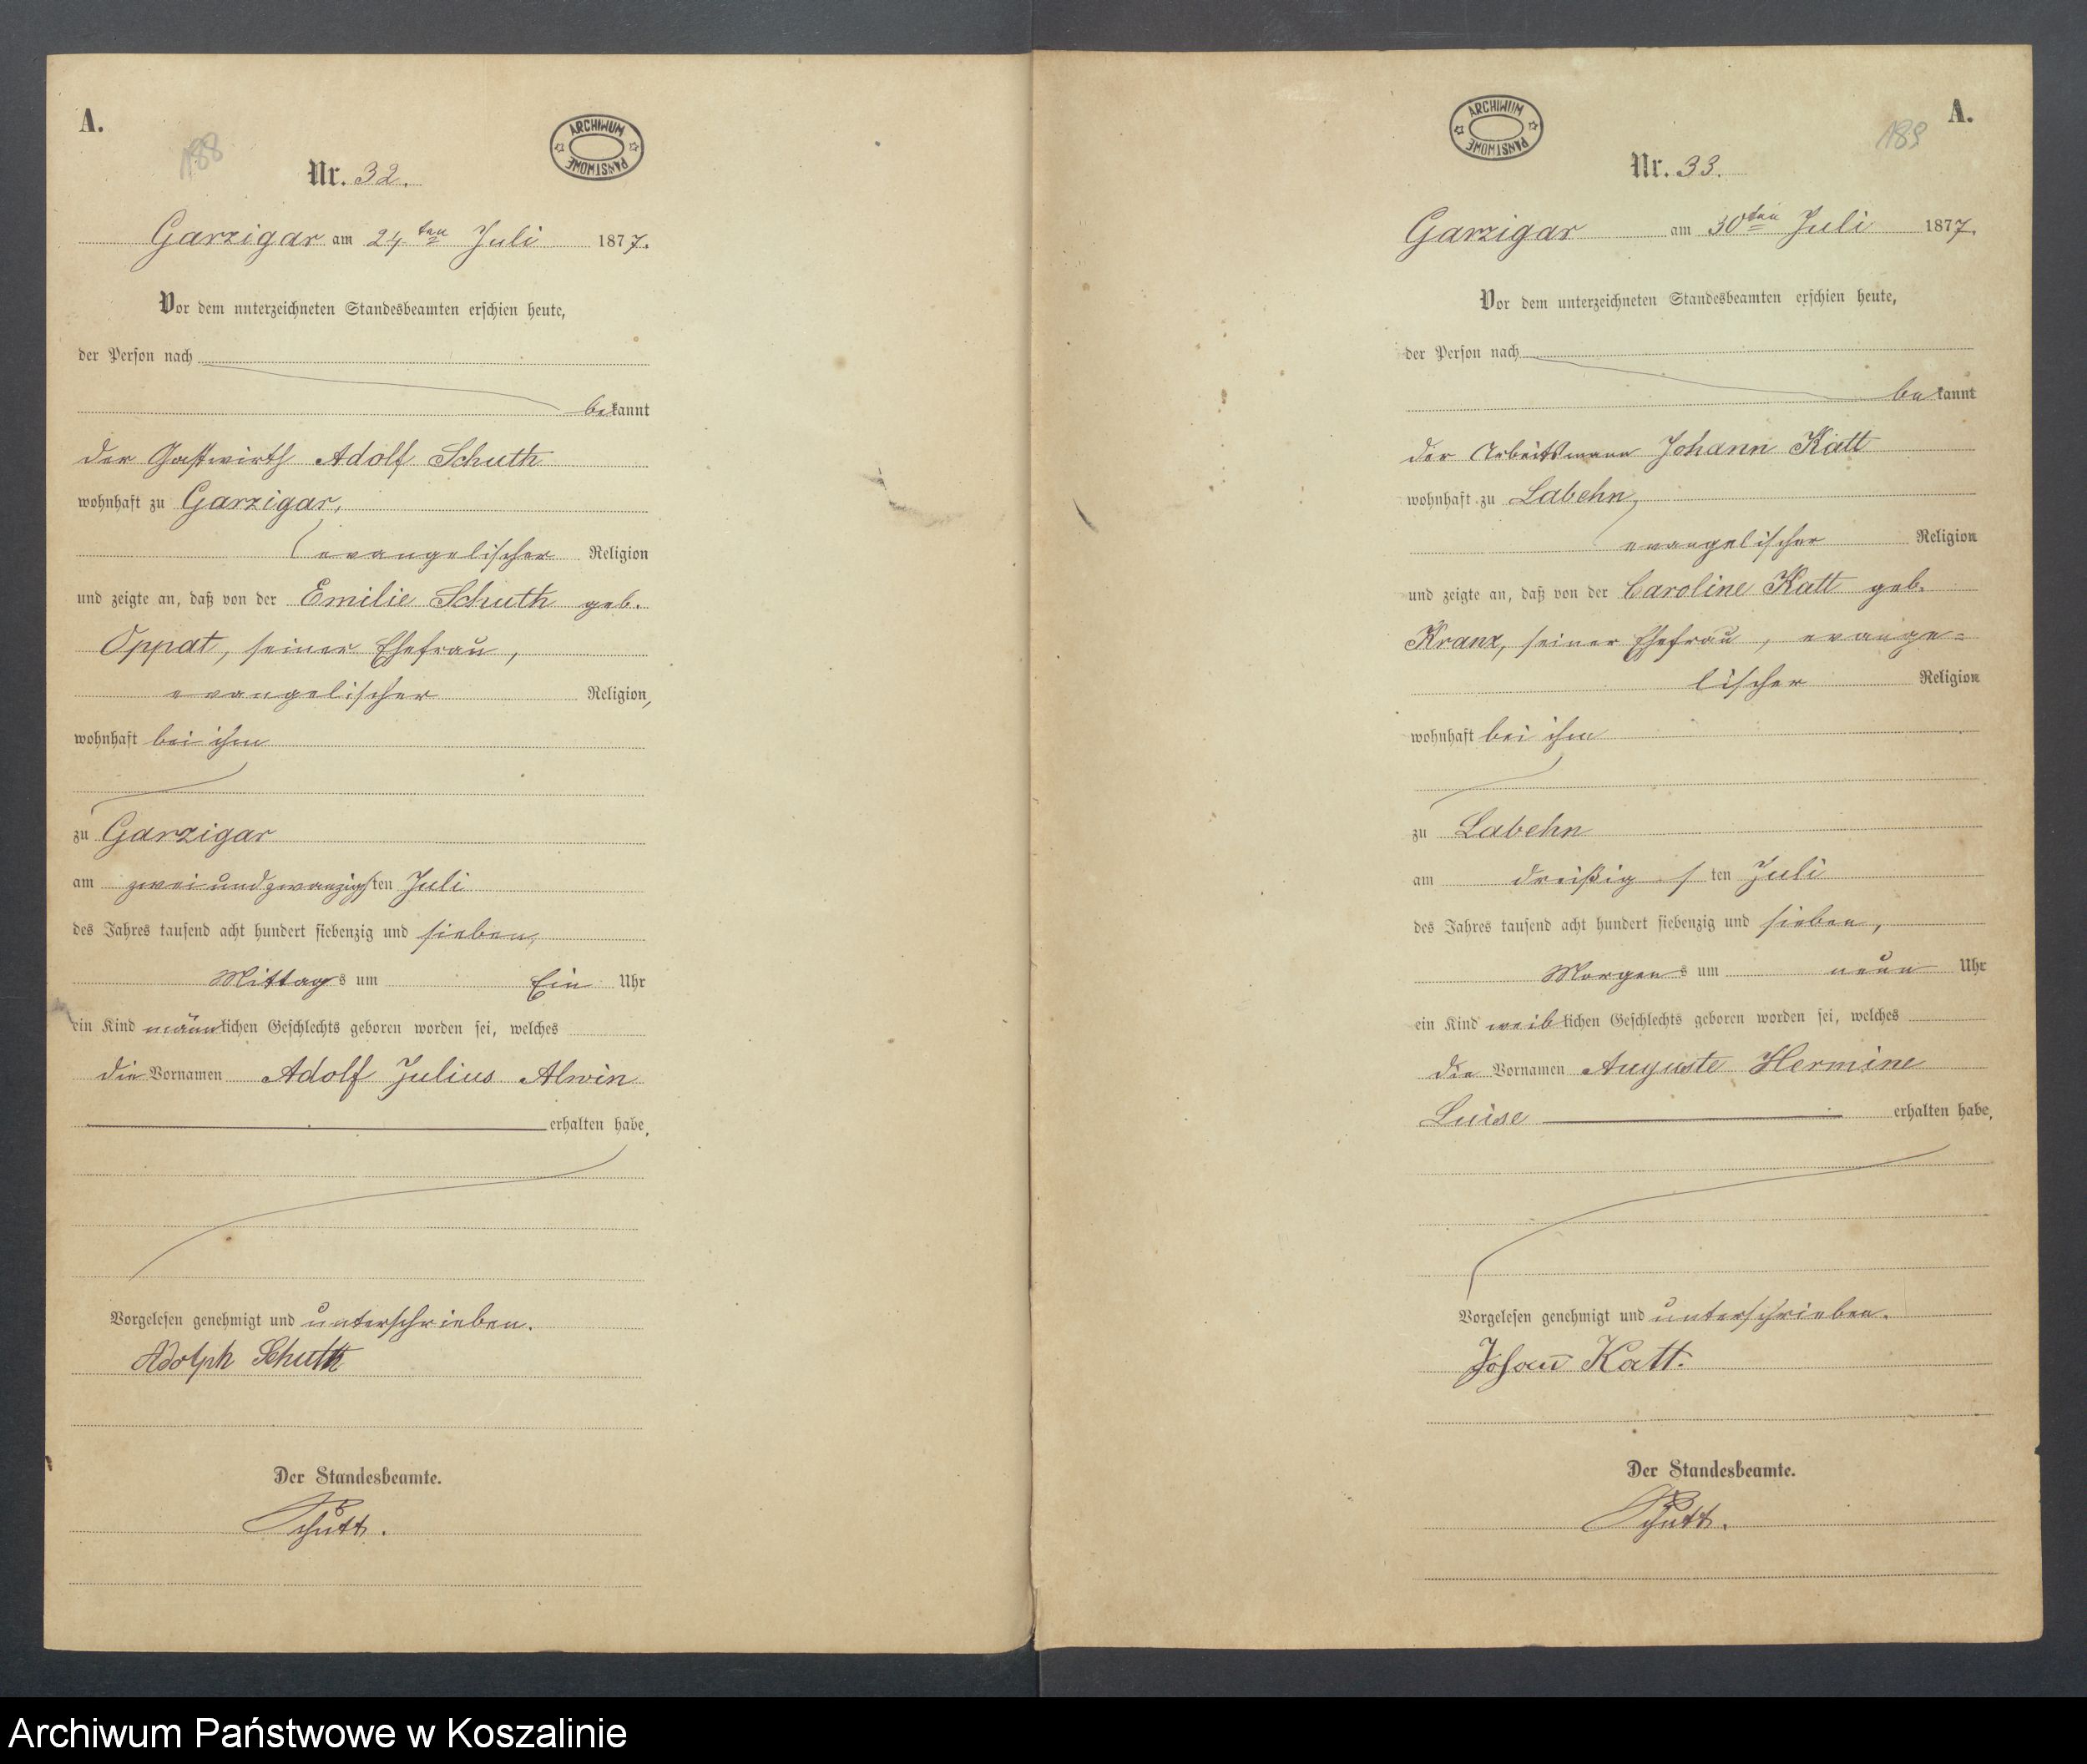 A.
188
ARCHIWUM PAŃSTWOWE
Nr. 32.
Garzigar am 24ten Juli 1877.
Vor dem unterzeichneten Standesbeamten erschien heute,
der Person nach
bekannt
der Gastwirth Adolf Schuth
wohnhaft zu Garzigar,
evangelischer Religion
und zeigte an, daß von der Emilie Schuth geb.
Oppat, seiner Ehefrau,
evangelischer Religion,
wohnhaft bei ihm
zu Garzigar
am zwei und zwanzigsten Juli
des Jahres tausend acht hundert siebenzig und sieben,
Mittags um Ein Uhr
ein Kind männlichen Geschlechts geboren worden sei, welches
die Vornamen Adolf Julius Alwin
erhalten habe,
Vorgelesen genehmigt und unterschrieben.
Adolph Schuth
Der Standesbeamte.
Schütt.
A.
189
ARCHIWUM PAŃSTWOWE
Nr. 33.
Garzigar am 30ten Juli 1877.
Vor dem unterzeichneten Standesbeamten erschien heute,
der Person nach
bekannt
der Arbeitsmann Johann Katt
wohnhaft zu Labehn,
evangelischer Religion
und zeigte an, daß von der Caroline Katt geb.
Kranz, seiner Ehefrau, evange=
lischer Religion
wohnhaft bei ihm
zu Labehn
am dreißigsten Juli
des Jahres tausend acht hundert siebenzig und sieben,
Morgens um neun Uhr
ein Kind weiblichen Geschlechts geboren worden sei, welches
die Vornamen Auguste Hermine
Luise erhalten habe,
Vorgelesen genehmigt und unterschrieben.
Johann Katt.
Der Standesbeamte.
Schütt.
Archiwum Państwowe w Koszalinie